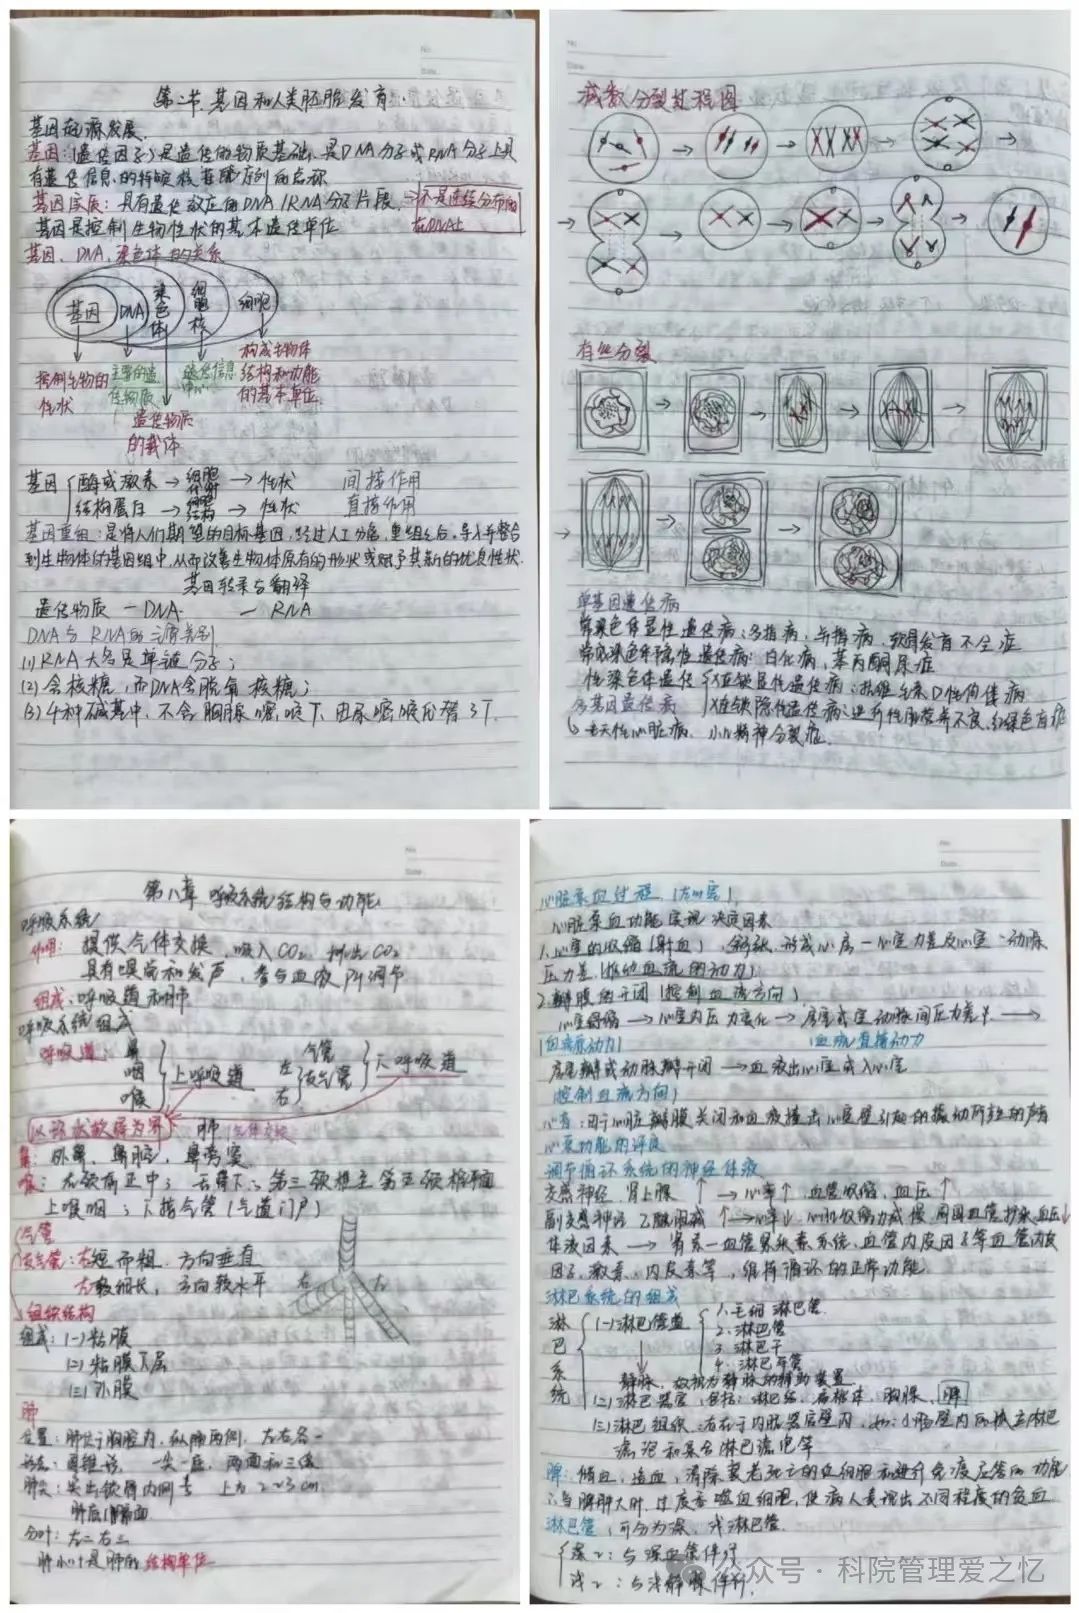 No.
Date.
第二节.基因和人类胚胎发育.
基因起源发展.
基因:(遗传因子)是遗传的物质基础,是DNA分子或RNA分子上具
有遗传信息的特定核苷酸序列的总称
基因实质:具有遗传效应的DNA/RNA分子片段. →不是连续分布的
基因是控制生物性状的基本遗传单位 在DNA上
基因、DNA、染色体的关系
基因 DNA 染色体 细胞核 细胞
控制生物的性状
主要的遗传物质
遗传信息
构成生物体结构和功能的基本单位.
遗传物质的载体
基因 酶或激素→细胞代谢→性状 间接作用
结构蛋白→细胞结构→性状 直接作用
基因重组:是将人们期望的目标基因,经过人工分离,重组后,导入并整合
到生物体的基因组中,从而改善生物体原有的形状或赋予其新的优良性状.
基因转录与翻译
遗传物质 — DNA. — RNA
DNA与RNA的主要差别
(1)RNA大多是单链分子;
(2)含核糖,而DNA含脱氧核糖;
(3)4种碱基中,不含胸腺嘧啶T,
No.
Date.
减数分裂过程图
有丝分裂
单基因遗传病
常染色体显性遗传病:多指病,并指病,软骨发育不全症
常染色体隐性遗传病:白化病,苯丙酮尿症
性染色体遗传 X连锁显性遗传病:抗维生素D性佝偻病
多基因遗传病 X连锁隐性遗传病:进行性肌营养不良,红绿色盲症
先天性心脏病. 精神分裂症.
No.
Date.
第八章 呼吸系统结构与功能
呼吸系统
作用:提供气体交换,吸入CO₂ 排出CO₂
具有嗅觉和发声,参与血液PH调节
组成:呼吸道和肺
呼吸系统组成
呼吸道:鼻 咽 喉 上呼吸道
左 右 气管 支气管 下呼吸道
肺 气体交换
鼻:外鼻、鼻腔,鼻旁窦
喉:在颈前正中;舌骨下;第三颈椎至第五颈椎平面
上喉咽;下接气管(气道门户)
气管
支气管:右短而粗,方向垂直
左较细长,方向较水平
右 左
组织结构
组成:(一)粘膜
(二)粘膜下层
(三)外膜
肺
位置:肺位于胸腔内,纵隔两侧,左右各一
形态:圆锥形, 一尖一底,两面和三缘
肺尖:突出锁骨内侧 上方2~3cm
肺底:膈面
分叶:左二右三
肺小叶是肺的结构单位
No.
Date.
心脏泵血过程.(左心室)
心脏泵血功能实现决定因素
1.心室的收缩(射血),舒张,形成心房—心室力差及心室—动脉
压力差(推动血流的动力)
2.瓣膜的开闭(控制血流方向)
心室舒缩→心室内压力变化→房室或室动脉间压力差→
(血流原动力) (血流直接动力)
房室瓣或动脉瓣开闭→血液出心室或入心室
(控制血流方向)
心音:由于心脏瓣膜关闭和血液撞击心室壁引起的振动所产生的声音
心泵功能的评定
调节循环系统的神经体液
交感神经 肾上腺↑→心率↑ 血管收缩,血压↑
副交感神经 乙酰胆碱↑→心率↓ 心肌收缩力减慢 周围血管扩张,血压↓
体液因素→肾素—血管紧张素系统,血管内皮因子等血管内皮
因子,激素、内皮素等,维持循环的正常功能.
淋巴系统的组成
淋巴系统
(一)淋巴管道 1.毛细淋巴管
2.淋巴管
3.淋巴干
4.淋巴导管
静脉,故视为静脉的辅助装置
(二)淋巴器官,包括:淋巴结,扁桃体,胸腺,脾
(三)淋巴组织:存在于内脏器官壁内,如:小肠壁内的孤立淋巴
滤泡和集合淋巴滤泡等
脾:储血,造血,清除衰老死亡的血细胞和进行免疫应答的功能
∴当脾肿大时,过度吞噬血细胞,使病人表现出不同程度的贫血
淋巴管:可分为深,浅淋巴管.
深:与深血管伴行
浅:与浅静脉伴行.
公众号·科院管理爱之忆